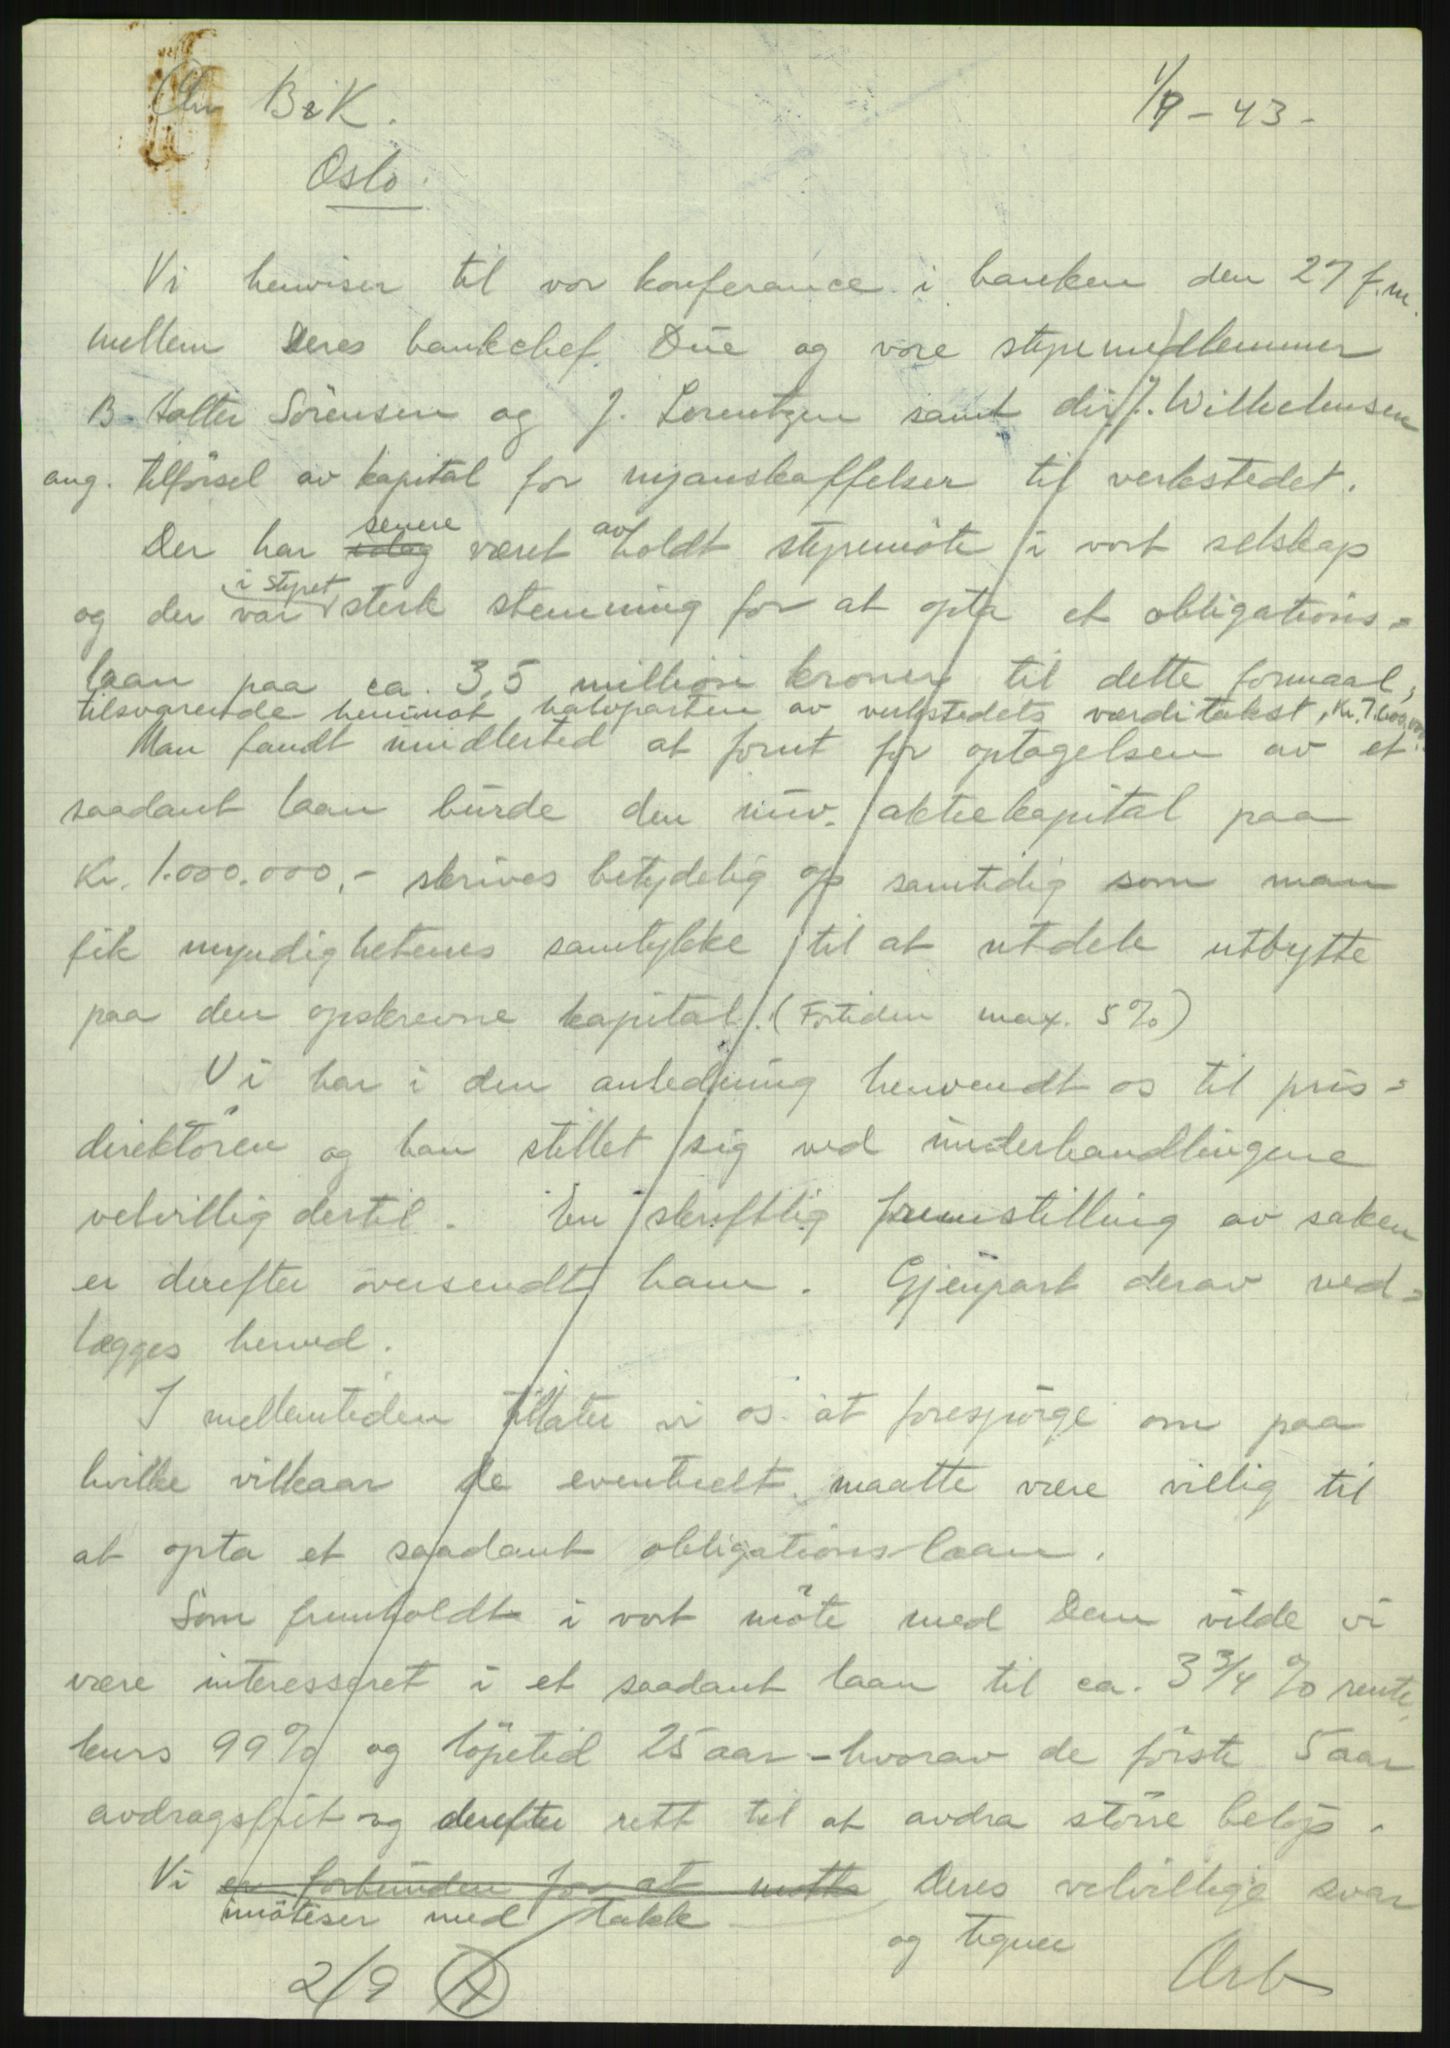 Chr B & K. 1/9 - 43 -
Oslo.
Vi henviser til vor konferance i banken den 27 f.m.
mellem Deres bankchef Due og vore styremedlemmer
B. Holter Sörensen og J. Lorentzen samt dir. J. Wilhelmsen
ang. tilförsel av kapital for nyanskaffelser til verkstedet.
senere
Der har idag været avholdt styremöte i vort selskap
i styret
og der var sterk stemning for at opta et obligations=
laan paa ca. 3,5 million kroner til dette formaal,
tilsvarende henimot halvparten av verkstedets værditakst, kr. 7.600.000.
Man fandt imidlertid at forut for optagelsen av et
saadant laan burde den nuv. aktiekapital paa
Kr. 1.000.000,- skrives betydelig op samtidig som man
fik myndighetenes samtykke til at utdele utbytte
paa den opskrevne kapital. (Fortiden max. 5%)
Vi har i den anledning henvendt os til pris=
direktören og han stillet sig ved underhandlingene
velvillig dertil. En skriftlig fremstilling av saken
er derefter översendt ham. Gjenpart derav ved=
lægges herved.
I mellemtiden tillater vi os at forespörge om paa
hvilke vilkaar De eventuelt maatte være villig til
at opta et saadant obligationslaan.
Som fremholdt i vort möte med Dem vilde vi
være interesseret i et saadant laan til ca. 3 3/4 % rente,
kurs 99% og löpetid 25 aar - hvorav de förste 5 aar
avdragsfrit og derefter rett til at avdra större belöp.
Vi er forbunden for at motta Deres velvillige svar
imöteser med takk
og tegner
2/9 Ærb